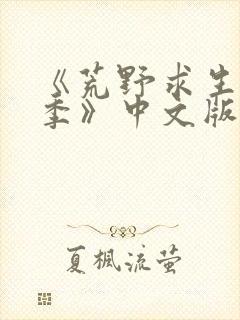 《荒野求生
季》中文版
夏楓流萤